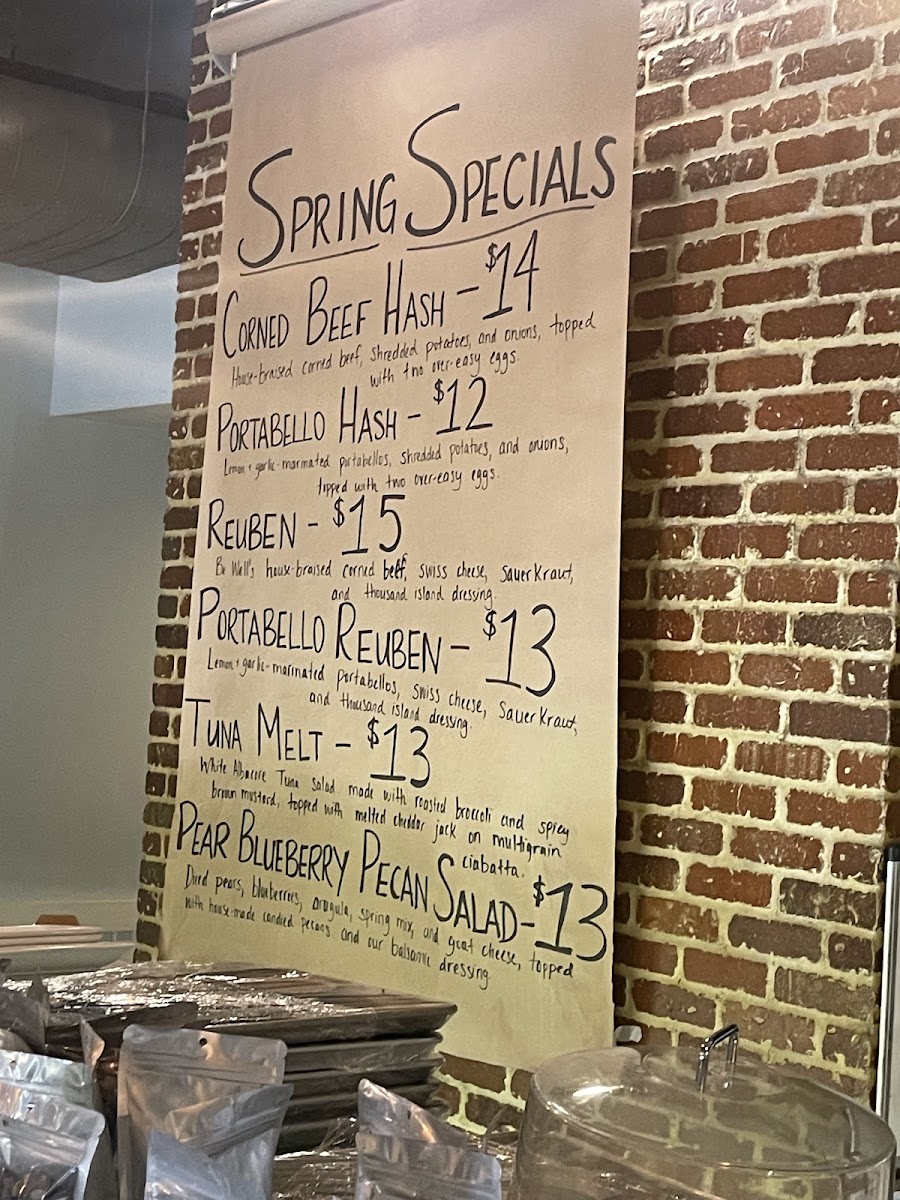 SPRING SPECIALS
CORNED BEEF HASH - $14
House-braised corned beef, shredded potatoes, and onions, topped
with two over-easy eggs.
PORTABELLO HASH - $12
Lemon + garlic-marinated portabellos, shredded potatoes, and onions,
topped with two over-easy eggs.
REUBEN - $15
Be Well's house-braised corned beef, swiss cheese, Sauer Kraut,
and thousand island dressing.
PORTABELLO REUBEN - $13
Lemon + garlic-marinated portabellos, swiss cheese, Sauer Kraut,
and thousand island dressing.
TUNA MELT - $13
White Albacore Tuna salad made with roasted broccoli and spicy
brown mustard, topped with melted cheddar jack on multigrain
ciabatta.
PEAR BLUEBERRY PECAN SALAD - $13
Diced pears, blueberries, arugula, spring mix, and goat cheese, topped
with house-made candied pecans and our balsamic dressing.